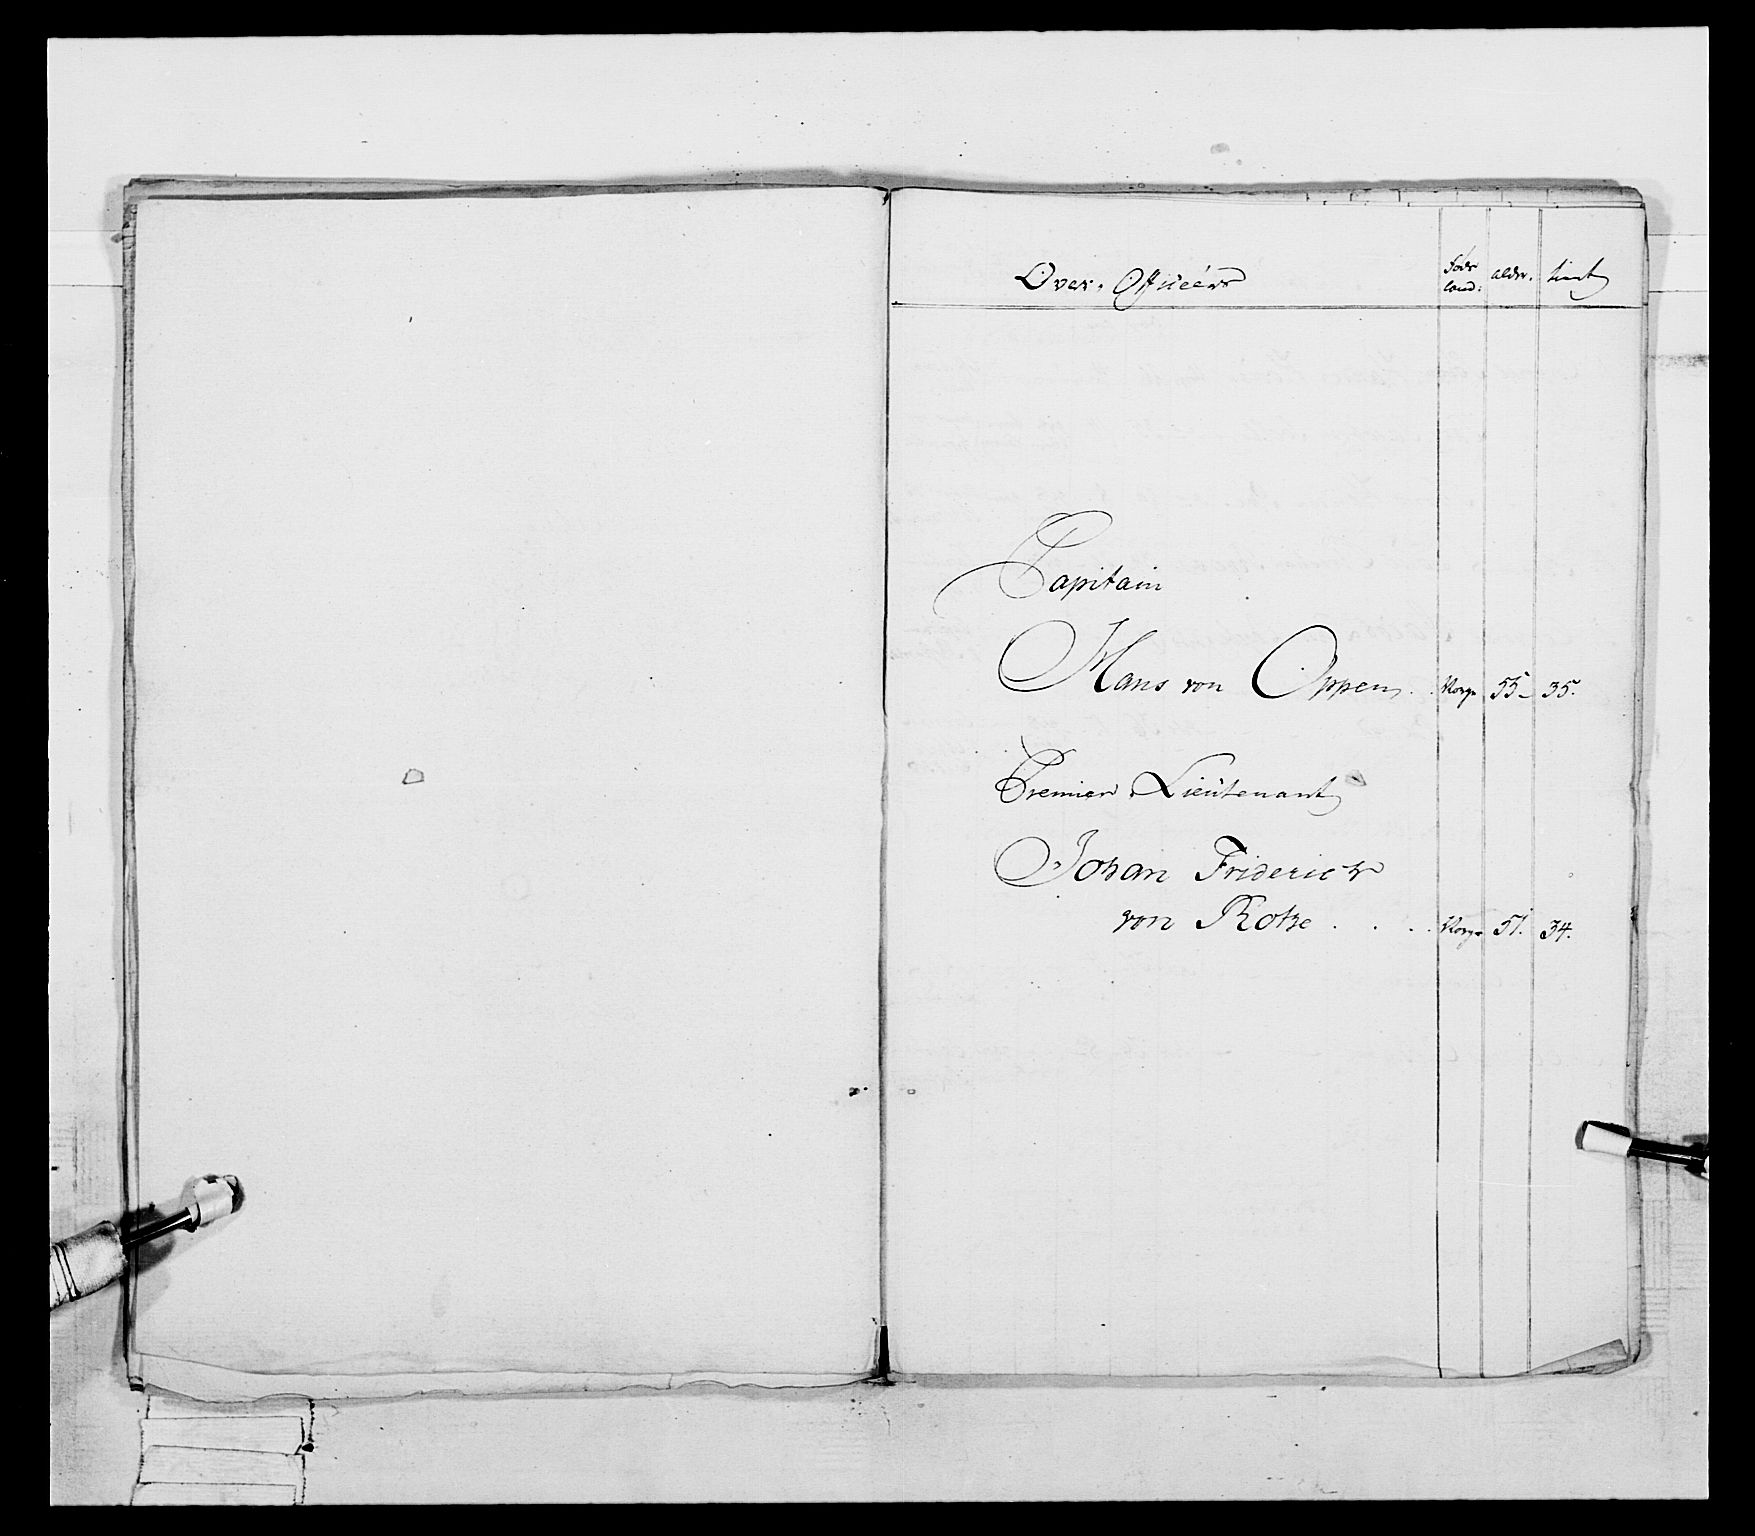 Over. Officeér
föde land: aldr. tient
Capitain
Hans von Oppen. . Norge 55. 35.
Premier Lieütenant
Johan Friderich
von Rotze . . . Norge 51. 34.